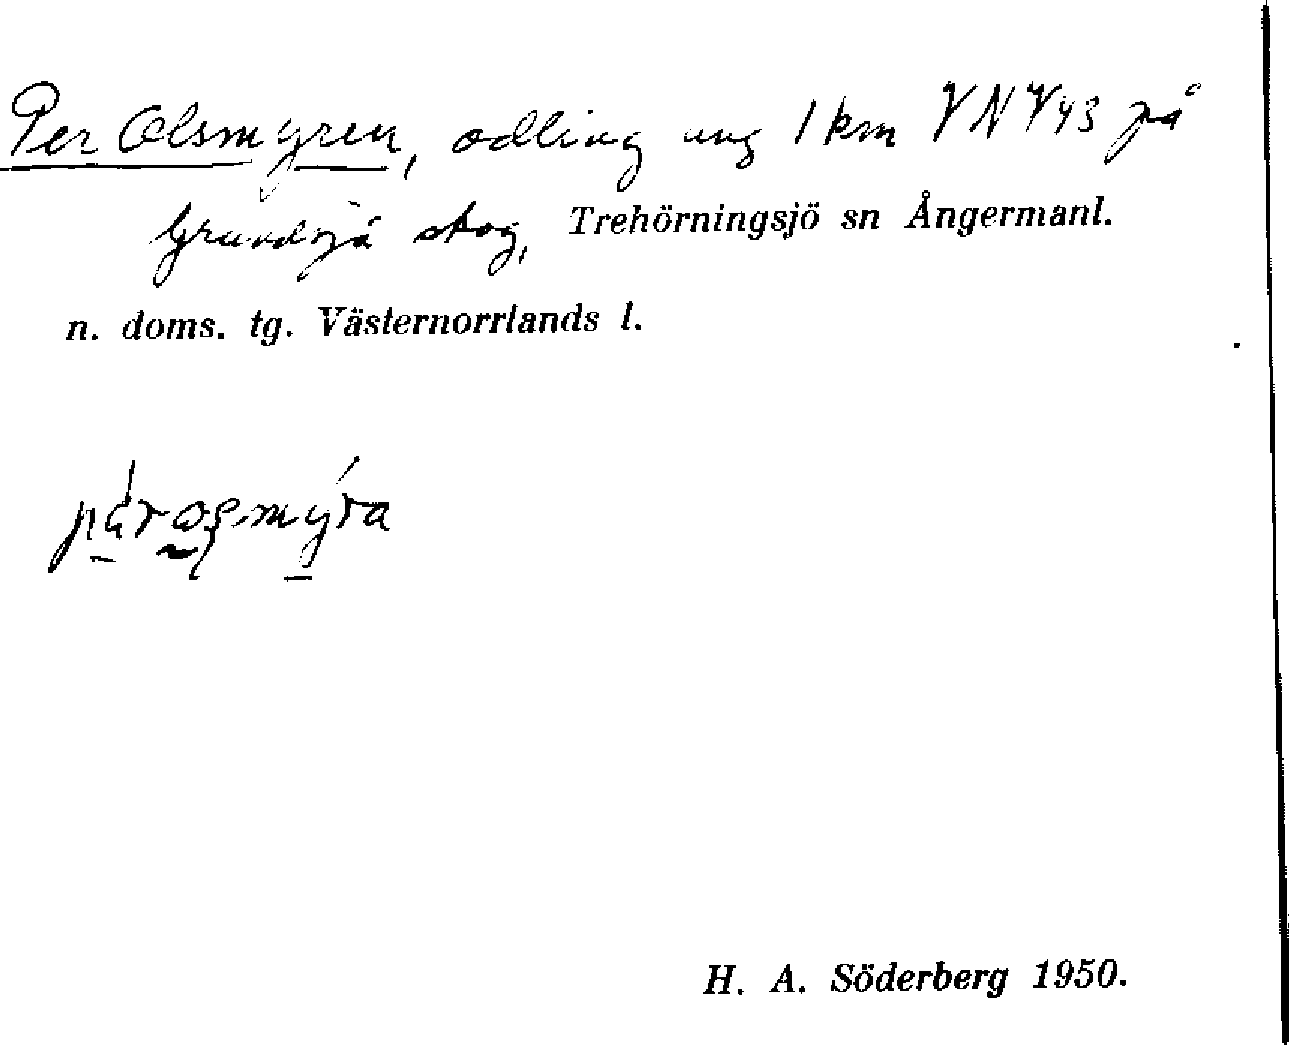 Per Olsmyren, odling ung 1 km VNV 43 på
Grundsjö skog, Trehörningsjö sn Ångermanl.
n. doms. tg. Västernorrlands l.
H. A. Söderberg 1950.